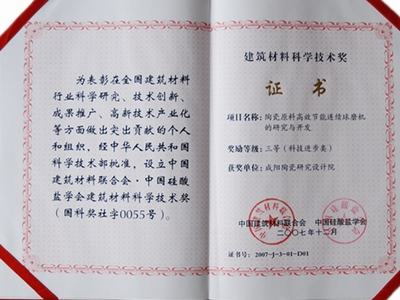 为表彰在全国建筑材料
行业科学研究、技术创新、
成果推广、高新技术产业化
等方面做出突出贡献的个人
和组织，经中华人民共和国
科学技术部批准，设立中国
建筑材料联合会·中国硅酸
盐学会建筑材料科学技术奖
（国科奖社字0055号）。
建筑材料科学技术奖
证书
项目名称：陶瓷原料高效节能连续球磨机
的研究与开发
奖励等级：三等（科技进步类）
获奖单位：咸阳陶瓷研究设计院
中国建筑材料联合会 中国硅酸盐学会
二〇〇七年十二月
证书号：2007-J-3-01-D01